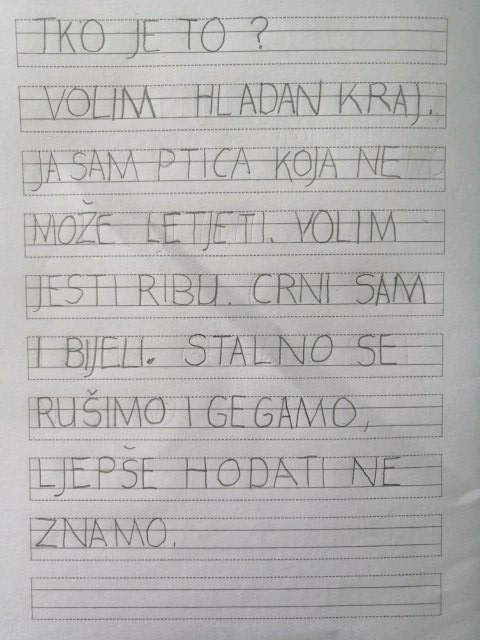 TKO JE TO ?
VOLIM HLADAN KRAJ.
JA SAM PTICA KOJA NE
MOŽE LETJETI. VOLIM
JESTI RIBU. CRNI SAM
I BIJELI. STALNO SE
RUŠIMO I GEGAMO,
LJEPŠE HODATI NE
ZNAMO.